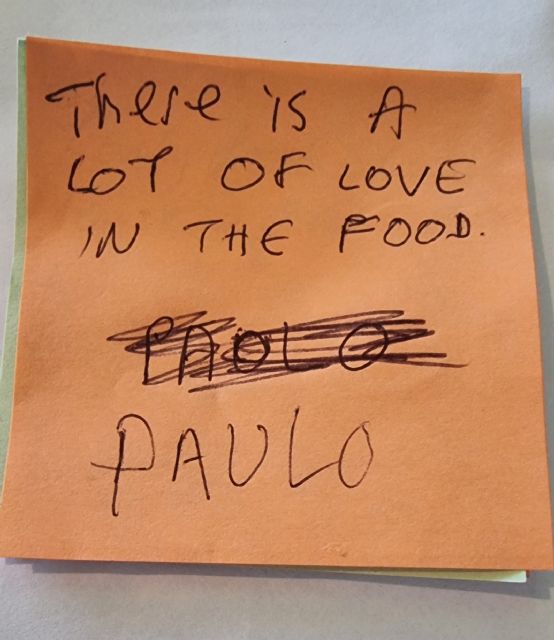 There is A
LOT OF LOVE
IN THE FOOD.
PAOLO
PAULO